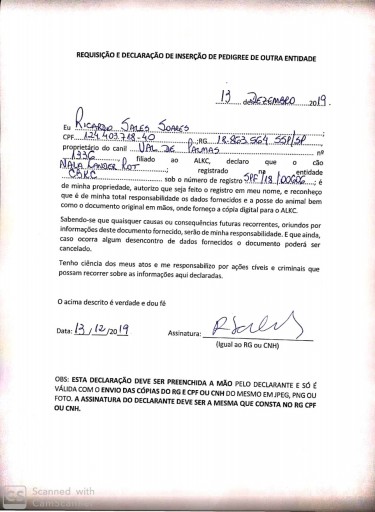 REQUISIÇÃO E DECLARAÇÃO DE INSERÇÃO DE PEDIGREE DE OUTRA ENTIDADE
13 de DEZEMBRO 2019.
Eu RICARDO SALES SOARES;
CPF 124.403.718-40 ;RG 18.863.564 SSP/SP
proprietário do canil VAL DE PALMAS nº
1336 filiado ao ALKC, declaro que o cão
NALA LANDER ROT, registrado na entidade
CBKC sob o número de registro SPF/18/00606; é
de minha propriedade, autorizo que seja feito o registro em meu nome, e reconheço
que é de minha total responsabilidade os dados fornecidos e a posse do animal bem
como o documento original em mãos, onde forneço a cópia digital para o ALKC.
Sabendo-se que quaisquer causas ou consequências futuras recorrentes, oriundos por
informações deste documento fornecido, serão de minha responsabilidade. E que ainda,
caso ocorra algum desencontro de dados fornecidos o documento poderá ser
cancelado.
Tenho ciência dos meus atos e me responsabilizo por ações cíveis e criminais que
possam recorrer sobre as informações aqui declaradas.
O acima descrito é verdade e dou fé
Data: 13/12/2019 Assinatura:
(Igual ao RG ou CNH)
OBS: ESTA DECLARAÇÃO DEVE SER PREENCHIDA A MÃO PELO DECLARANTE E SÓ É
VÁLIDA COM O ENVIO DAS CÓPIAS DO RG E CPF OU CNH DO MESMO EM JPEG, PNG OU
FOTO. A ASSINATURA DO DECLARANTE DEVE SER A MESMA QUE CONSTA NO RG CPF
OU CNH.
CS Scanned with
CamScanner